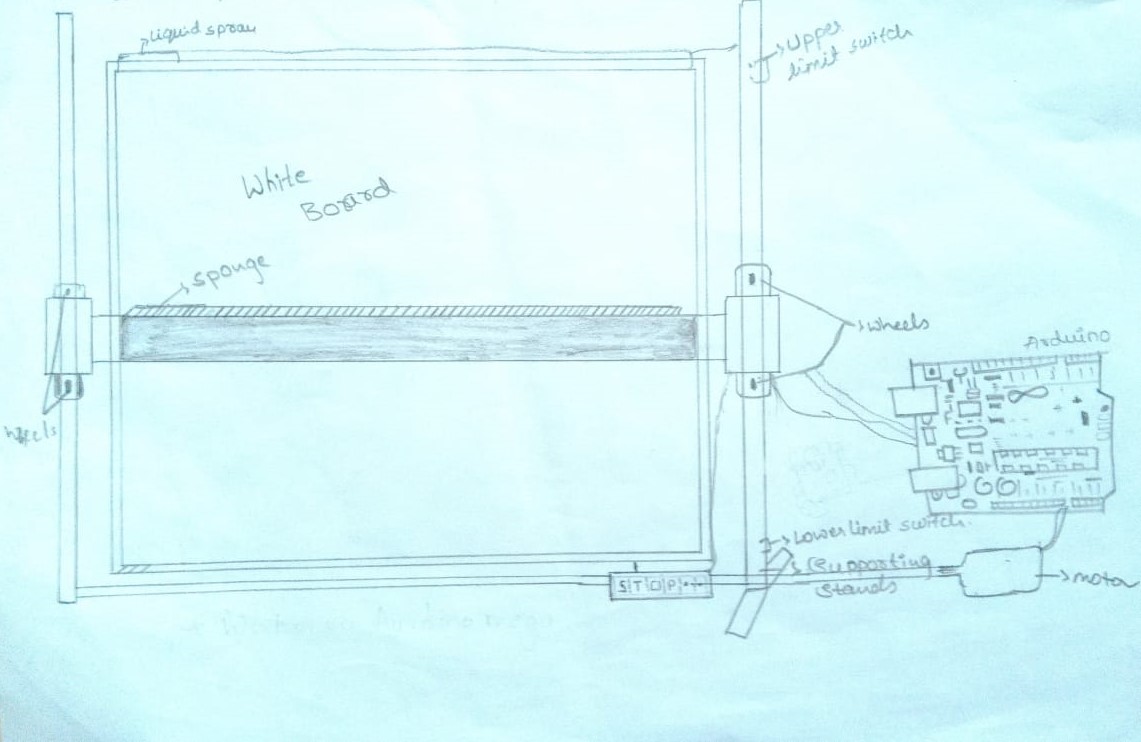 Liquid spray
Upper
limit switch
White
Board
Sponge
wheels
Arduino
wheels
Lower limit switch.
Supporting
Stands
STOP
motor